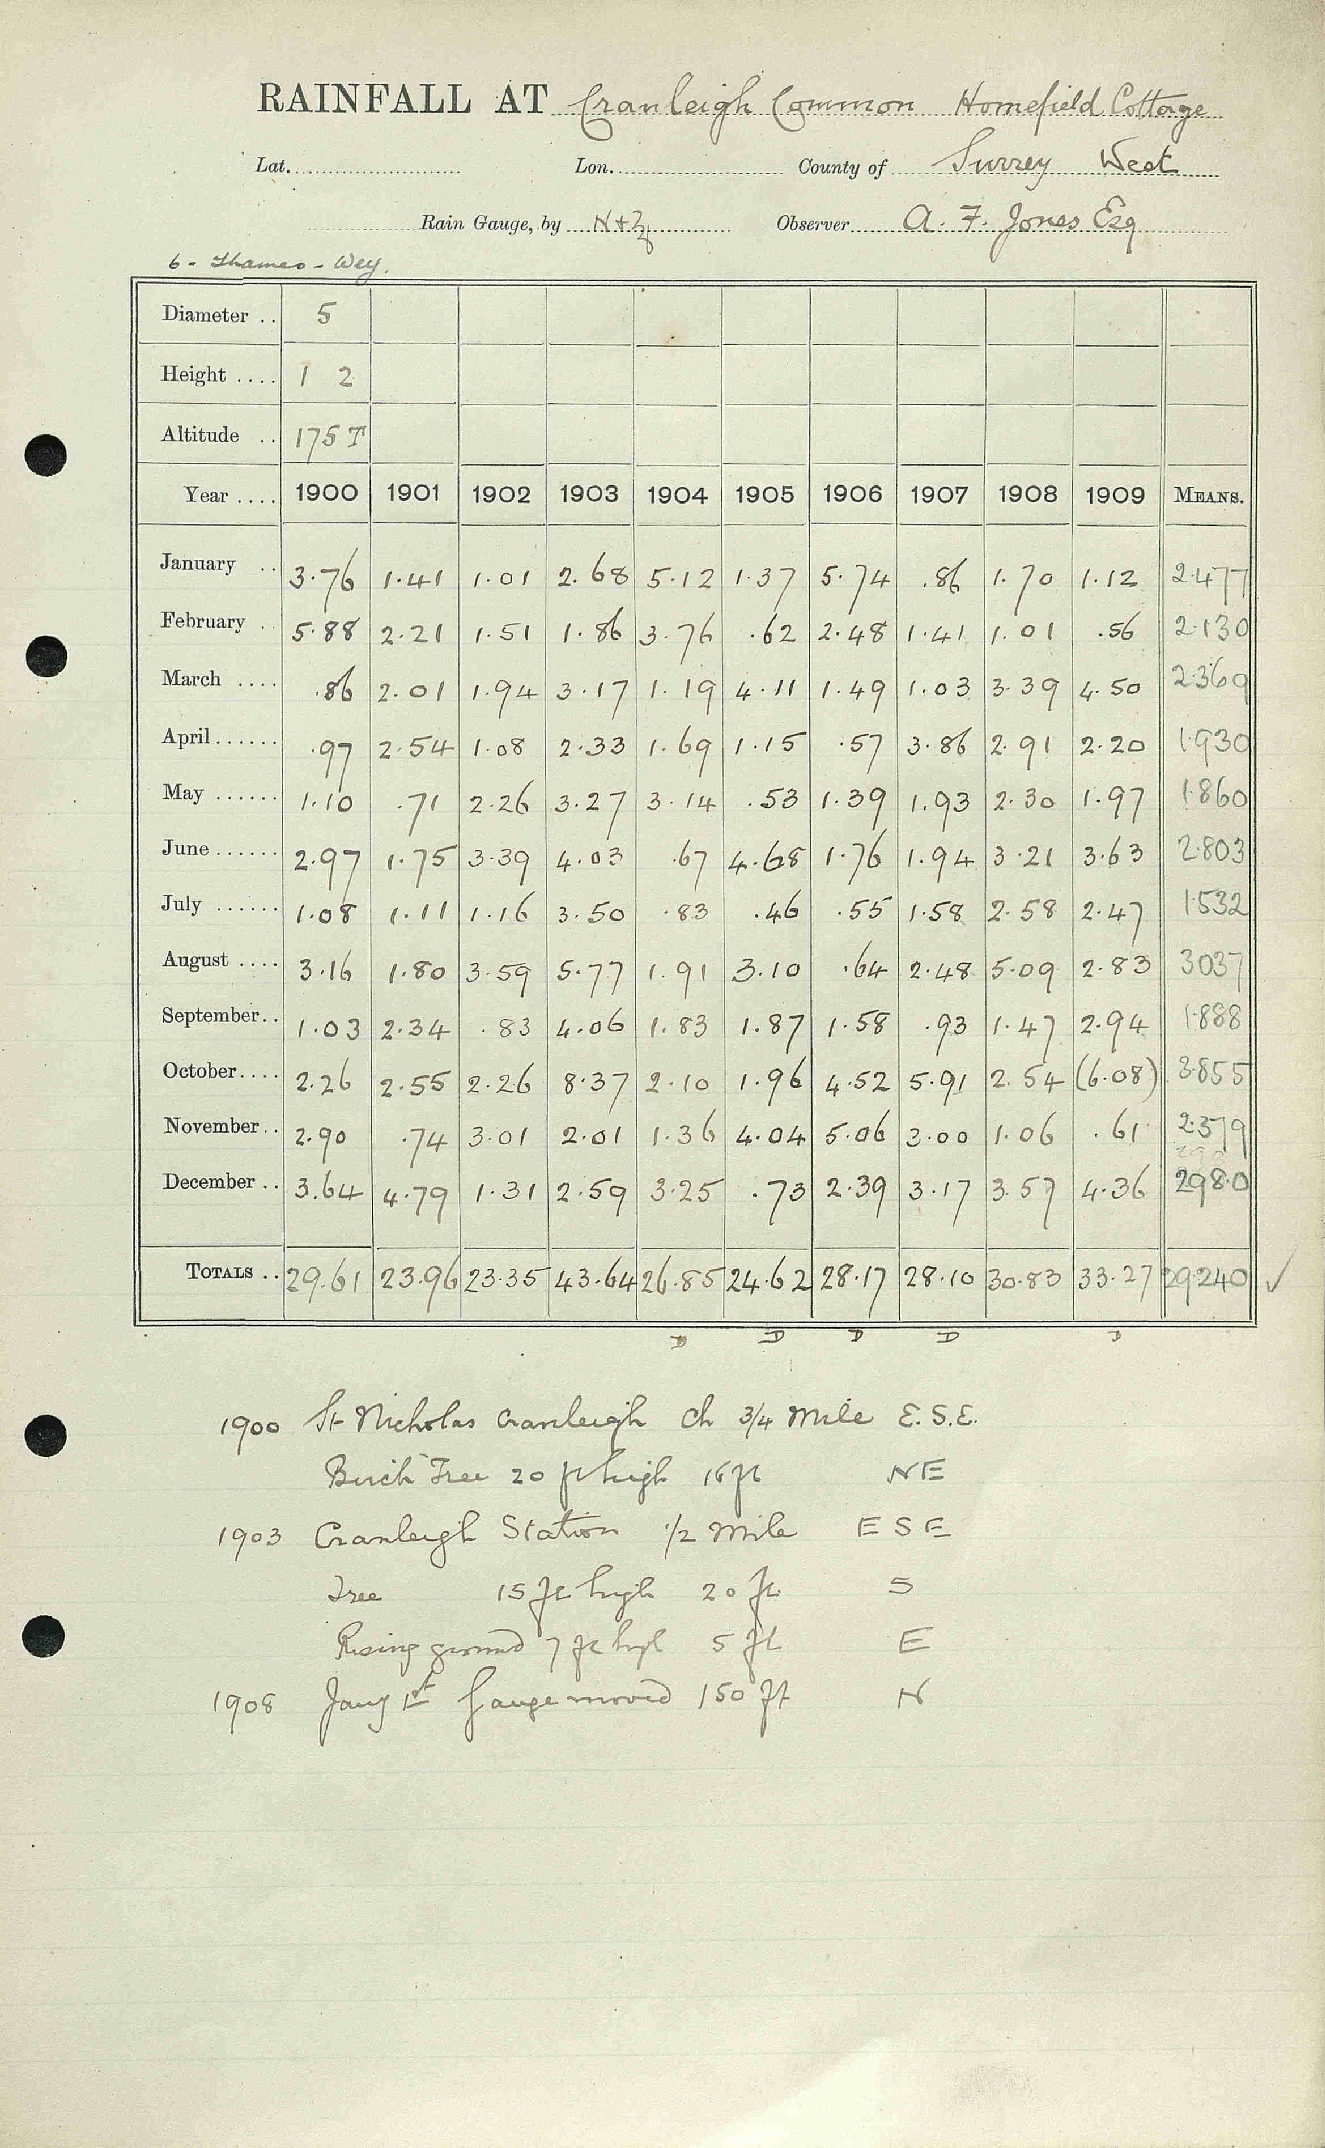 RAINFALL AT Cranleigh Common Homefield Cottage
Lat. Lon. County of Surrey West
Rain Gauge, by N+Z Observer A. F. Jones Esq
6 - Thames - Wey.
Diameter .. 5
Height .... 1 2
Altitude .. 175 T
Year .... 1900 1901 1902 1903 1904 1905 1906 1907 1908 1909 MEANS.
January .. 3.76 1.41 1.01 2.68 5.12 1.37 5.74 .86 1.70 1.12 2.477
February . 5.88 2.21 1.51 1.86 3.76 .62 2.48 1.41 1.01 .56 2.130
March .... .86 2.01 1.94 3.17 1.19 4.11 1.49 1.03 3.39 4.50 2.369
April...... .97 2.54 1.08 2.33 1.69 1.15 .57 3.86 2.91 2.20 1.930
May ...... 1.10 .71 2.26 3.27 3.14 .53 1.39 1.93 2.30 1.97 1.860
June...... 2.97 1.75 3.39 4.03 .67 4.68 1.76 1.94 3.21 3.63 2.803
July ...... 1.08 1.11 1.16 3.50 .83 .46 .55 1.58 2.58 2.47 1.532
August .... 3.16 1.80 3.59 5.77 1.91 3.10 .64 2.48 5.09 2.83 3037
September.. 1.03 2.34 .83 4.06 1.83 1.87 1.58 .93 1.47 2.94 1.888
October.... 2.26 2.55 2.26 8.37 2.10 1.96 4.52 5.91 2.54 (6.08) 3.855
November.. 2.90 .74 3.01 2.01 1.36 4.04 5.06 3.00 1.06 .61 2.379
December .. 3.64 4.79 1.31 2.59 3.25 .73 2.39 3.17 3.57 4.36 2980
TOTALS .. 29.61 23.96 23.35 43.64 26.85 24.62 28.17 28.10 30.83 33.27 29.240 ✓
D D D D D
1900 St Nicholas Cranleigh Ch 3/4 Mile E.S.E.
Birch Tree 20 ft high 16 ft NE
1903 Cranleigh Station 1/2 Mile E S E
Tree 15 ft high 20 ft S
Rising ground 7 ft high 5 ft E
1908 Jany 1st Gauge moved 150 ft N